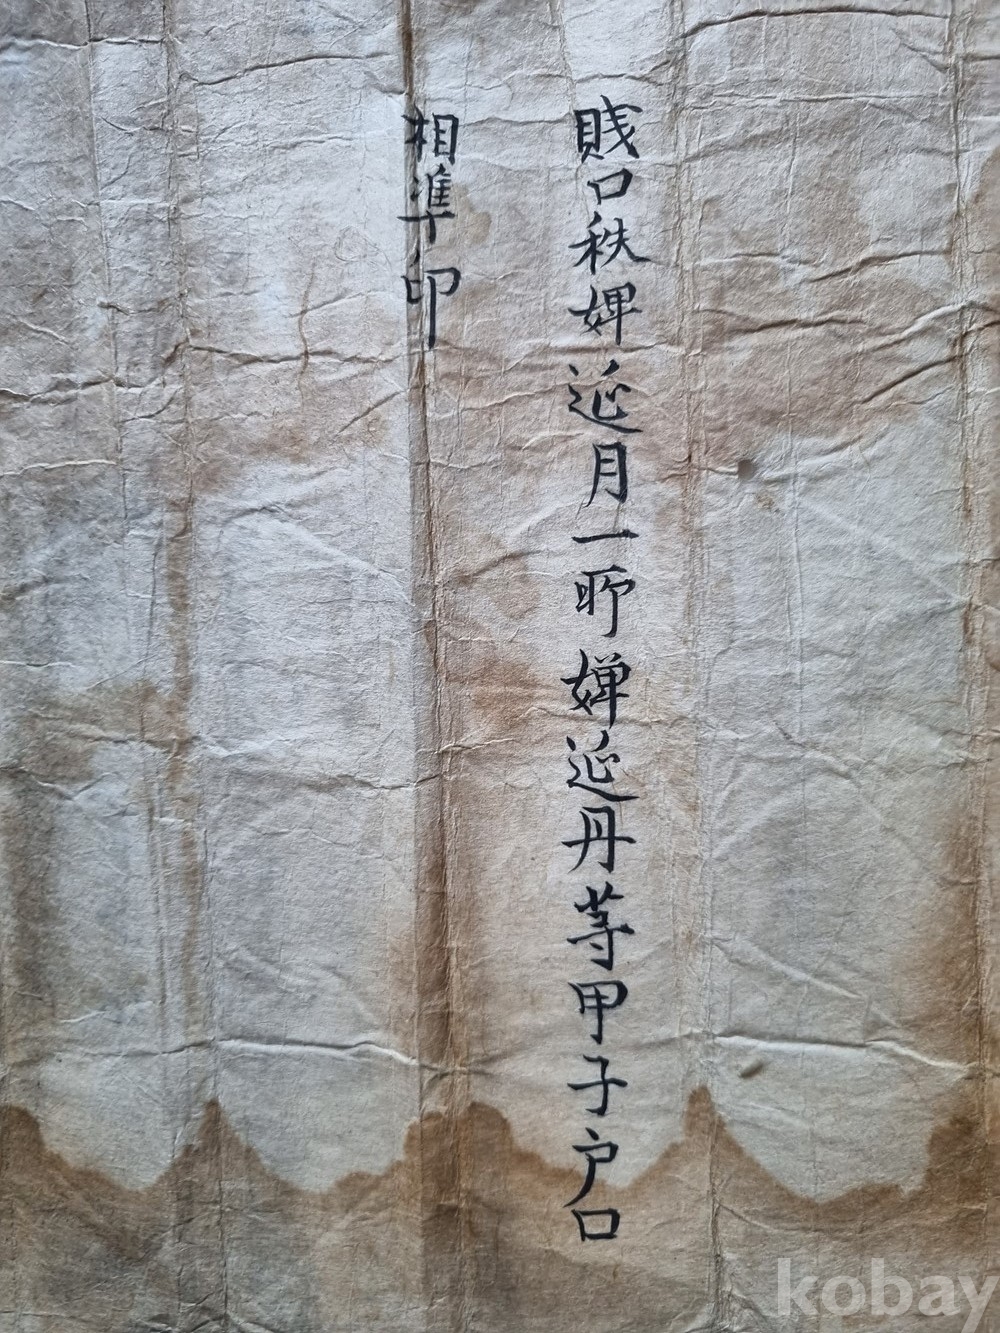 賎口秩婢延月一所婢延丹等甲子户口
相準印
kobay